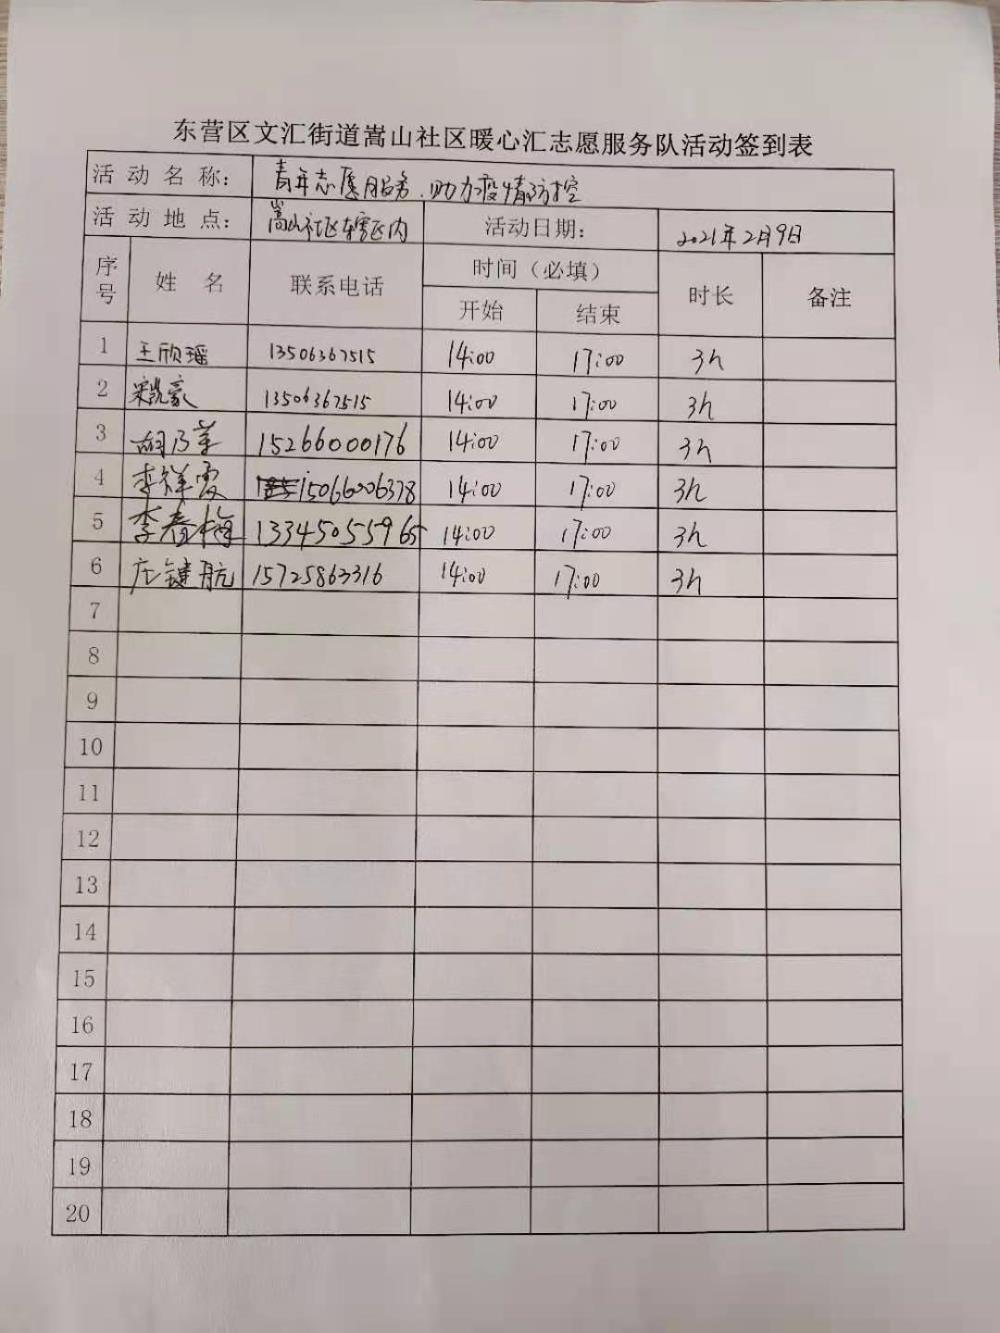 东营区文汇街道嵩山社区暖心汇志愿服务队活动签到表
活动名称： 青年志愿服务，助力疫情防控
活动地点： 嵩山社区辖区内 活动日期： 2021年2月9日
序号 姓名 联系电话 时间（必填） 时长 备注
开始 结束
1 王欣瑶 13506367515 14:00 17:00 3h
2 宋凯豪 13506367515 14:00 17:00 3h
3 胡乃苹 15266000176 14:00 17:00 3h
4 李祥霞 15066006378 14:00 17:00 3h
5 李春梅 13345055965 14:00 17:00 3h
6 庄键航 15725863316 14:00 17:00 3h
7
8
9
10
11
12
13
14
15
16
17
18
19
20